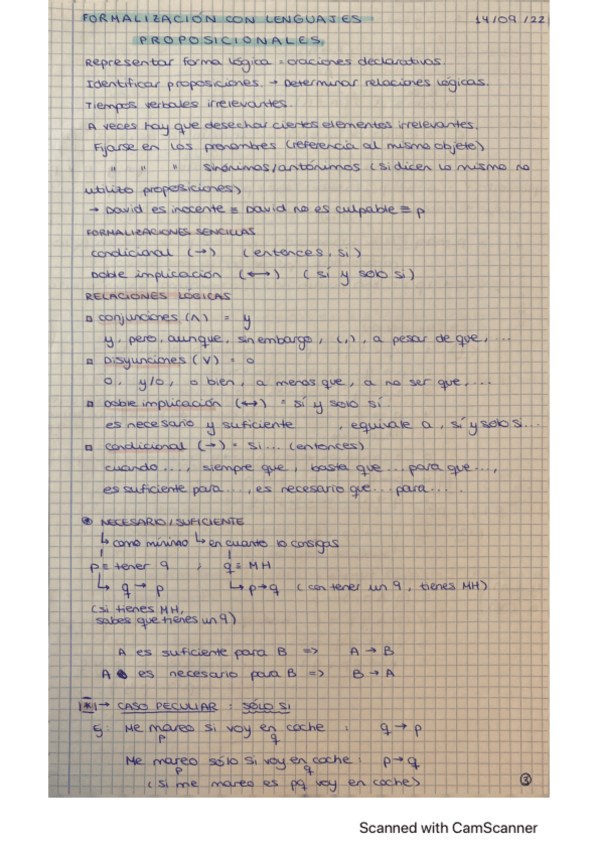 FORMALIZACIÓN CON LENGUAJES 14/09/22
PROPOSICIONALES.
Representar forma lógica = oraciones declarativas.
Identificar proposiciones. → Determinar relaciones lógicas.
Tiempos verbales irrelevantes.
A veces hay que desechar ciertos elementos irrelevantes.
Fijarse en los pronombres (referencia al mismo objeto)
" " " sinónimos/antónimos (si dicen lo mismo no
utilizo proposiciones)
→ David es inocente ≡ David no es culpable ≡ p
FORMALIZACIONES SENCILLAS
Condicional (→) (entonces, si)
Doble implicación (↔) (sí y solo si)
RELACIONES LÓGICAS
▫ Conjunciones (∧) = y
y, pero, aunque, sin embargo, (,), a pesar de que, ...
▫ Disyunciones (∨) = o
o, y/o, o bien, a menos que, a no ser que, ...
▫ Doble implicación (↔) = sí y solo sí
es necesario y suficiente , equivale a, sí y solo si...
▫ condicional (→) = Si... (entonces)
cuando ..., siempre que, basta que ... para que...,
es suficiente para..., es necesario que... para.....
NECESARIO/SUFICIENTE
↳ como mínimo ↳ en cuanto lo consigas
p ≡ tener 9 ; q ≡ MH
↳ q → p ↳ p → q (con tener un 9, tienes MH)
(si tienes MH,
sabes que tienes un 9)
A es suficiente para B => A → B
A es necesario para B => B → A
|*| → CASO PECULIAR : SÓLO SI
5: Me mareo si voy en coche : q → p
p q
Me mareo sólo si voy en coche : p → q
p q
(si me mareo es pq voy en coche)
3
Scanned with CamScanner